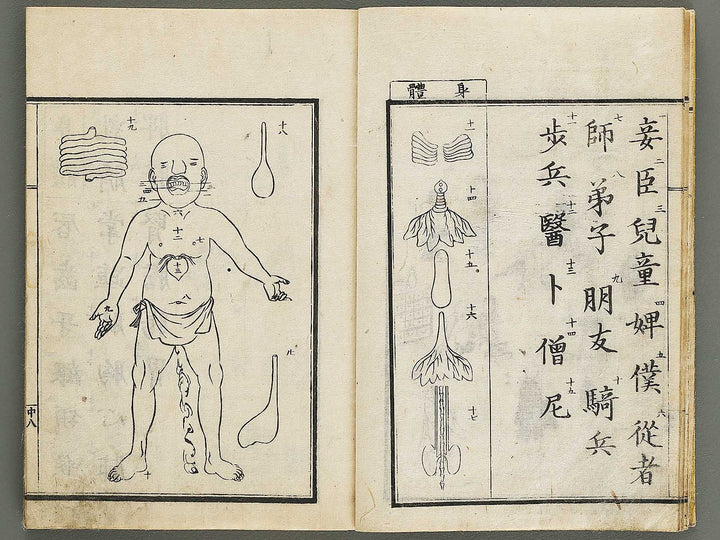 妾 臣 兒童 婢 僕 從者
一 二 三 四 五 六
師 弟子 朋友 騎兵
七 八 九 十
步兵 醫 卜 僧 尼
十一 十二 十三 十四 十五
身體
十一
十四
十五
十六
十七
十八
十九
四
五
六
十二
七
十三
八
九
十
中八